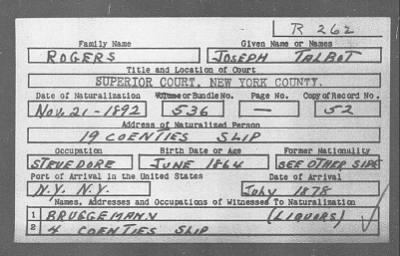 R 262
Family Name Given Name or Names
ROGERS JOSEPH TALBOT
Title and Location of Court
SUPERIOR COURT, NEW YORK COUNTY.
Date of Naturalization Volume or Bundle No. Page No. Copy of Record No.
Nov. 21-1892 536 — 52
Address of Naturalized Person
19 COENTIES SLIP
Occupation Birth Date or Age Former Nationality
STEVEDORE JUNE 1864 SEE OTHER SIDE
Port of Arrival in the United States Date of Arrival
N.Y. N.Y. July 1878
Names, Addresses and Occupations of Witnesses To Naturalization
1 BRUGGEMANN (LIQUORS)
2 4 COENTIES SLIP